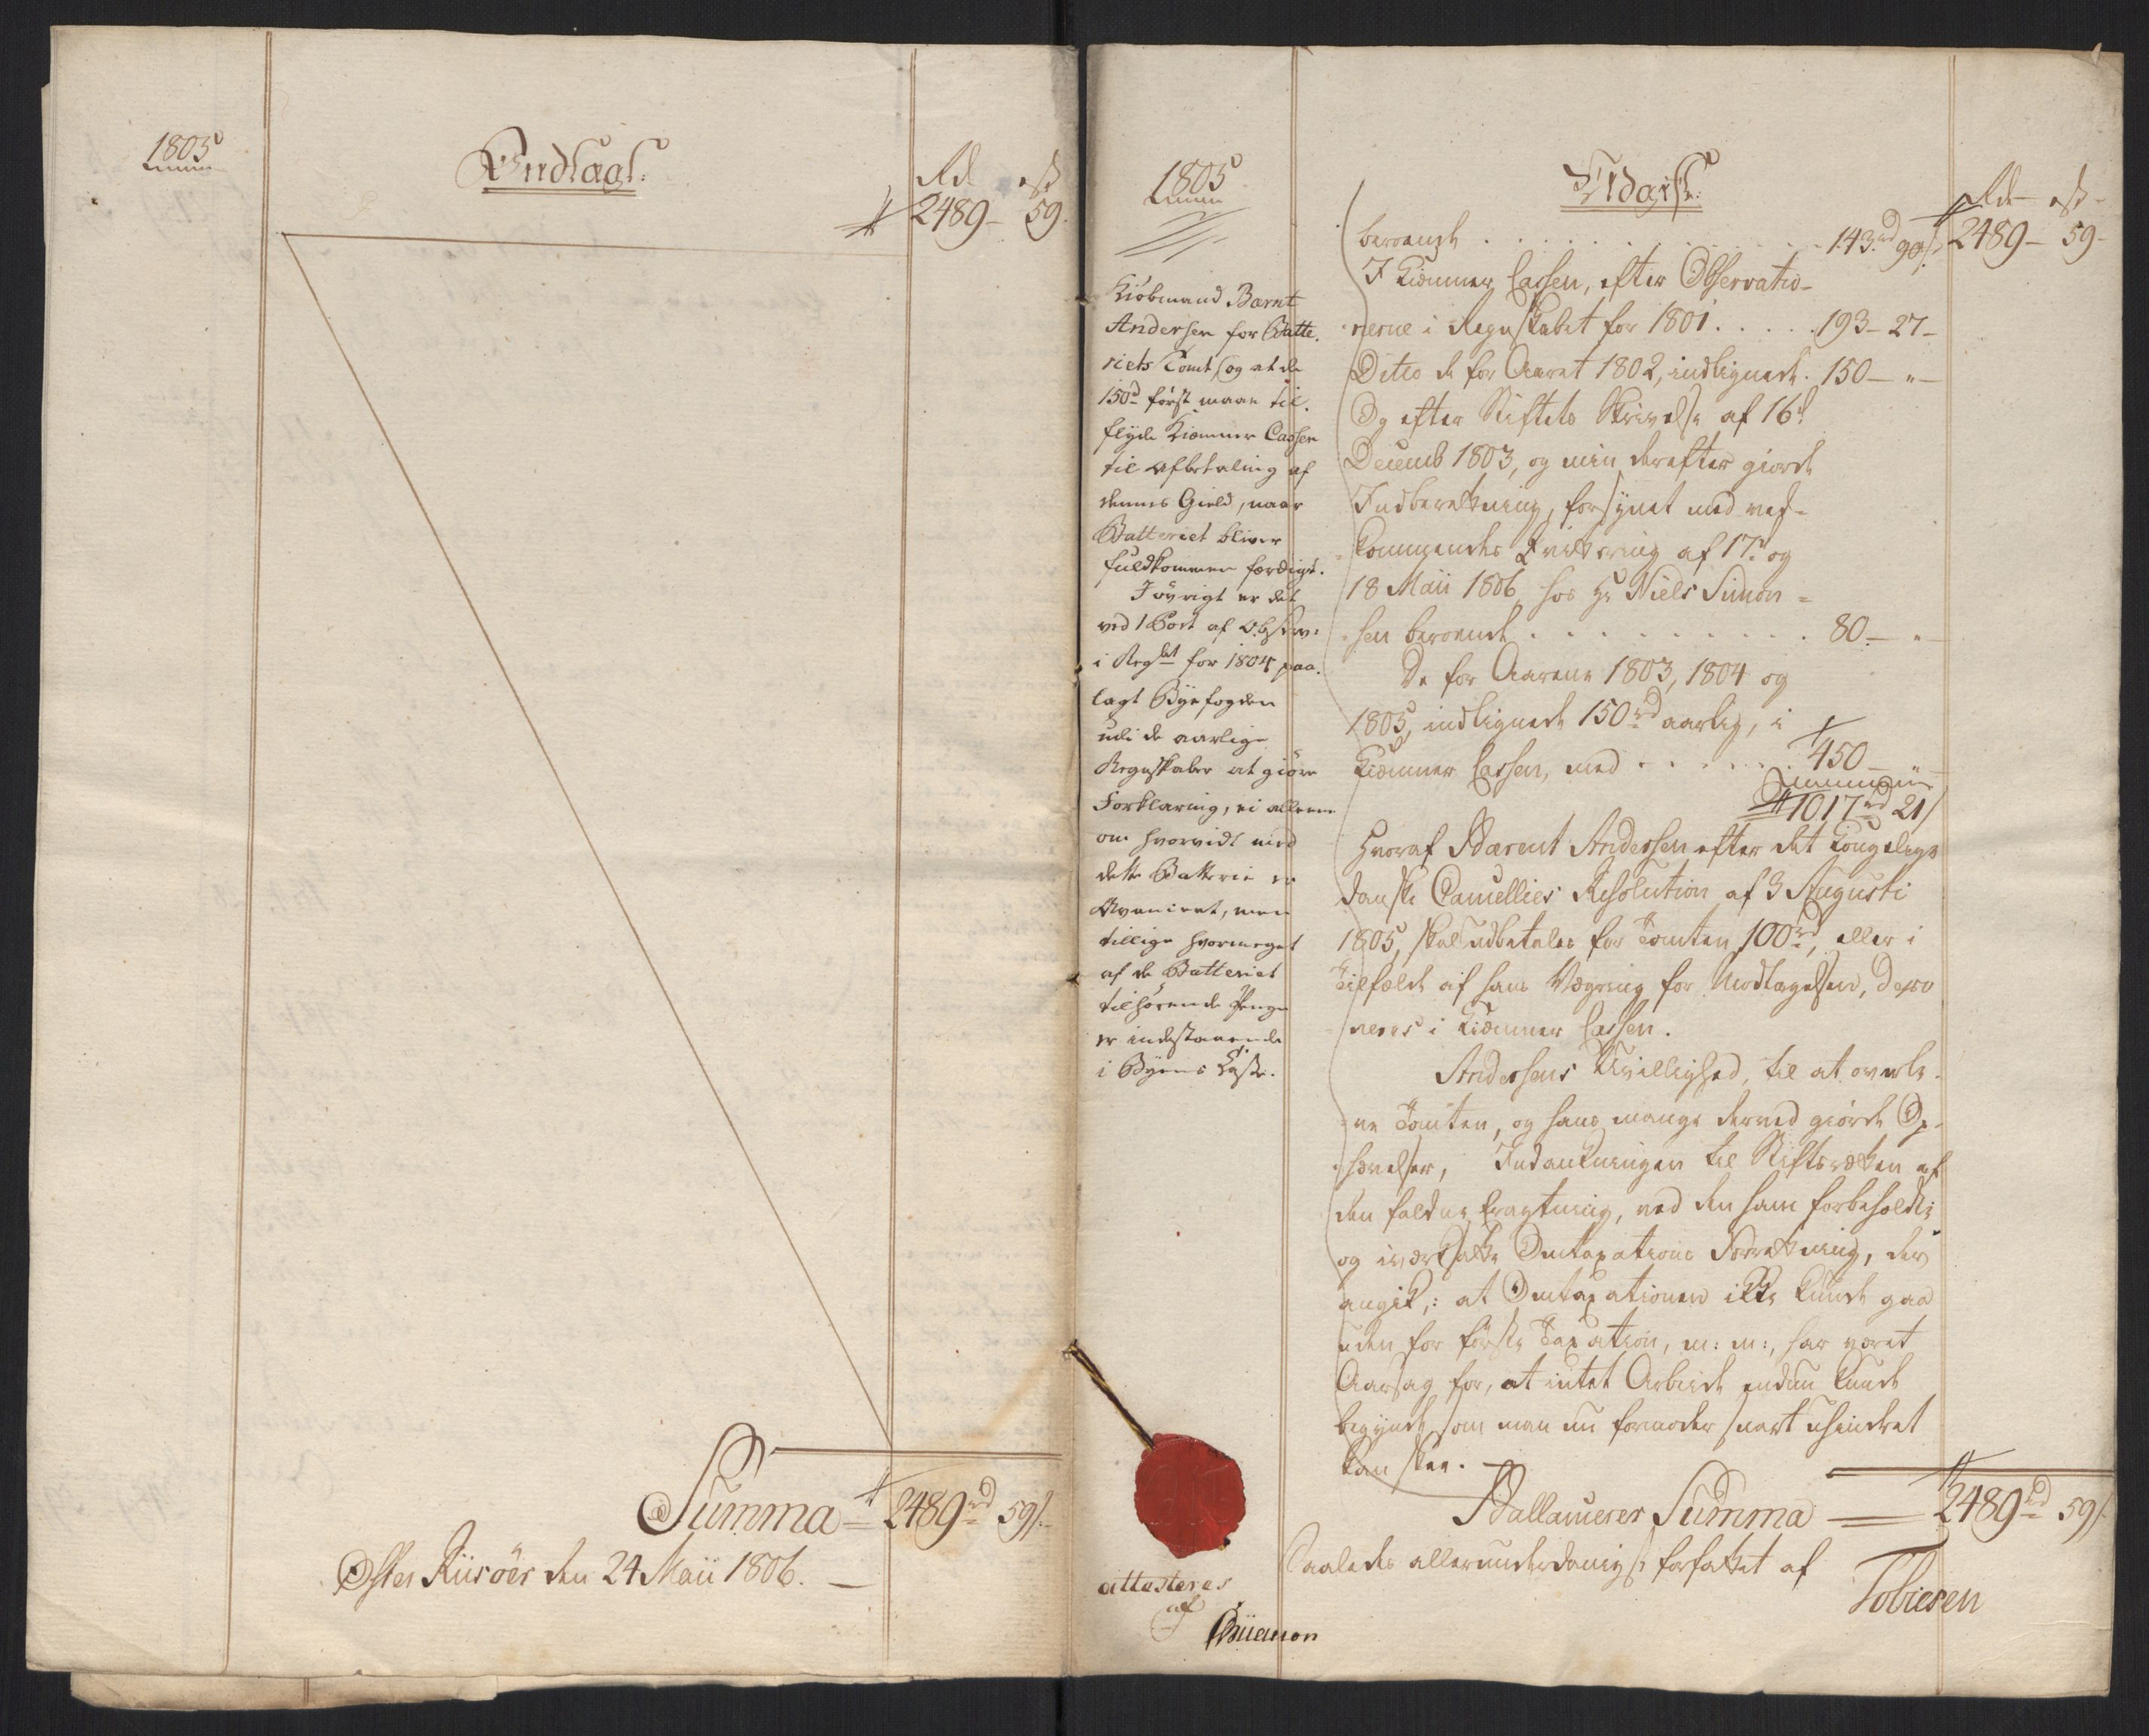 1805
Indtægt.
Rd ß
2489 - 59.
Summa = 2489 rd 59 ß.
Öster Riisöer den 24 Maii 1806. —
1805
Kiöbmand Barnt
Andersen for Batte-
riets Tomt, og at de
150 d först maae til-
flyde Kiæmner Cassen
til afbetaling af
dennes Gield, naar
Batteriet bliver
fuldkommen færdigt.
I övrigt er det
ved 1 Post af Observ:
i Regsbet for 1804 paa-
lagt Byefogden
udi de aarlige
Regnskaber at giöre
Forklaring, ei alleene
om hvorvidt med
dette Batterie er
Avanceret, men
tillige hvormeget
af de Batteriet
tilhörende Penge
er indestaaende
i Byens Casse.
attesteres
af
Udgivt.
Rd ß
beroende . . . . . 143 rd 90 ß. 2489 - 59 -
I Kiæmner Cassen, efter Observatio-
nerne i Regnskabet for 1801 . . . . . 193 - 27 -
Ditto de for Aaret 1802, indlignede . 150 - " -
Og efter Stiftets Skrivelse af 16 d
Decemb 1803, og min derefter giorde
Indberetning, forsynet med ved-
kommendes Qvittering af 17 d og
18 Maii 1806, hos Hr Niels Simon-
sen beroende . . . . . . . . . . 80 - " -
De for Aarene 1803, 1804 og
1805, indlignede 150 rd aarlig, i
Kiæmner Cassen, med . . . . . . 450 - " -
1017 rd 21 ß
Hvoraf Barent Andersen efter det Kongelige
danske Cancellies Resolution af 3 Augusti
1805, skal udbetales for Tomten 100 rd, eller i
Tilfælde af hans Vægring for Modtagelsen, depo
neres i Kiæmner Cassen.
Andersens Uvillighed, til at overla-
ne Tomten, og hans mange derved giorde Op-
hævelser, Indankningen til Stiftsretten af
den faldne fragtning, ved den ham forbeholdte
og iværksatte Omtaxations Forretning, der
angik,: at Omtaxationen ikke kunde gaa
uden for förste Taxation, m: m:, har været
Aarsag for, at intet Arbeide endnu kunde
begynde, som man nu formoder snart uhindret
kan skee.
Ballancerer Summa — 2489 rd 59 ß.
Saaledes allerunderdanigst forfattet af
Tobiesen